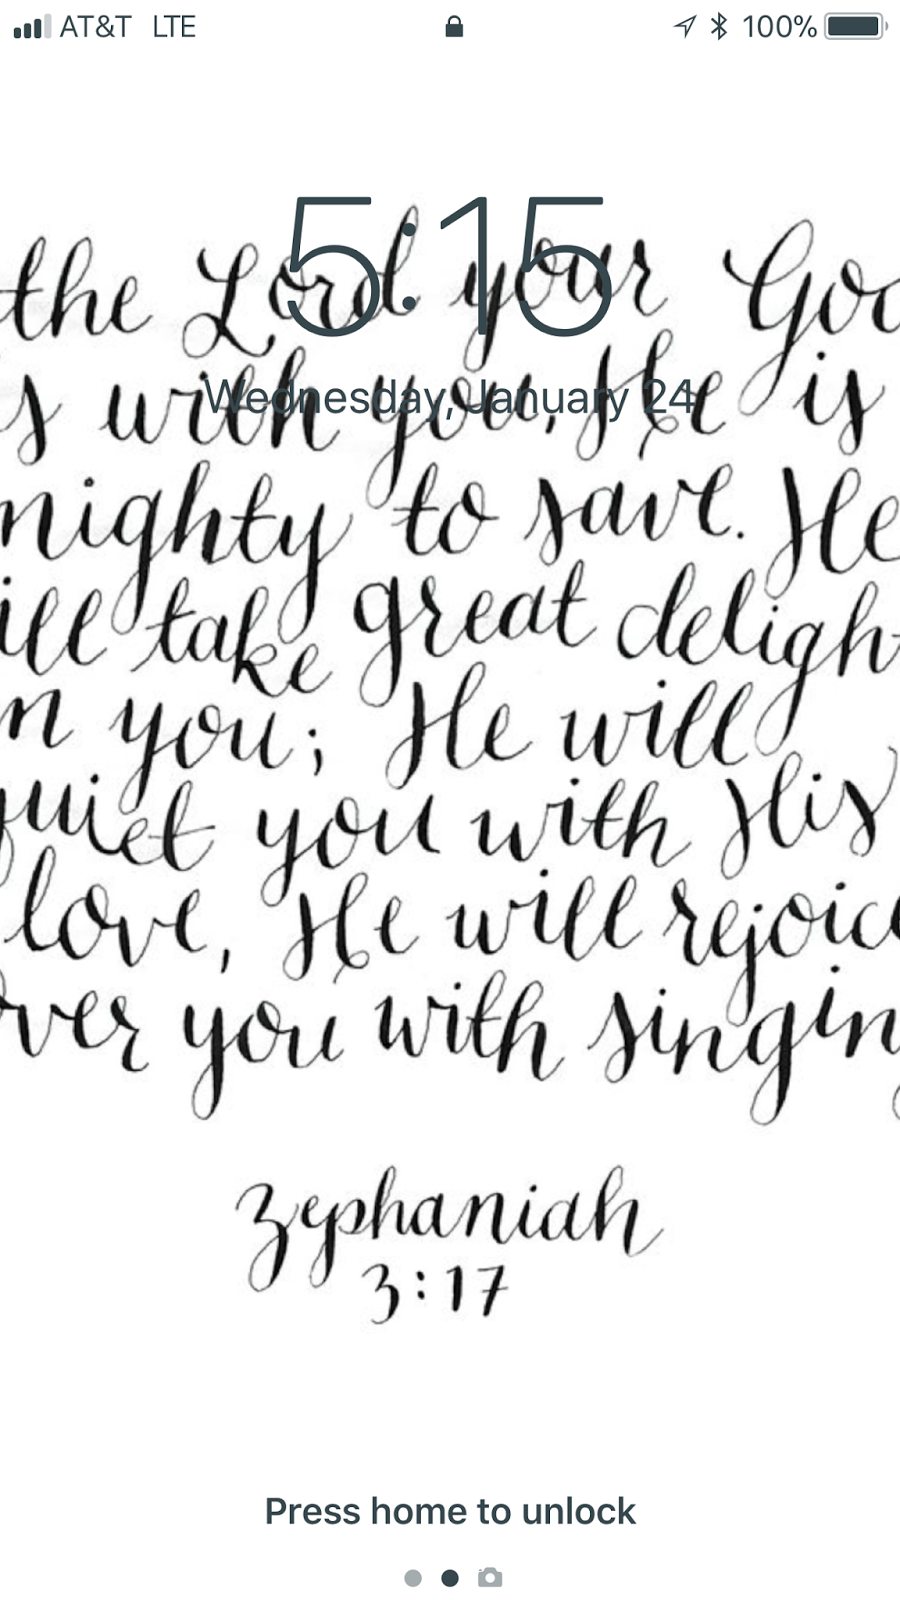 AT&T LTE 100%
5:15
the Lord your Goo
s with you, He is
Wednesday, January 24
nighty to save. He
ill take great deligh
n you; He will
quiet you with His
love, He will rejoice
ver you with singin
Zephaniah
3:17
Press home to unlock